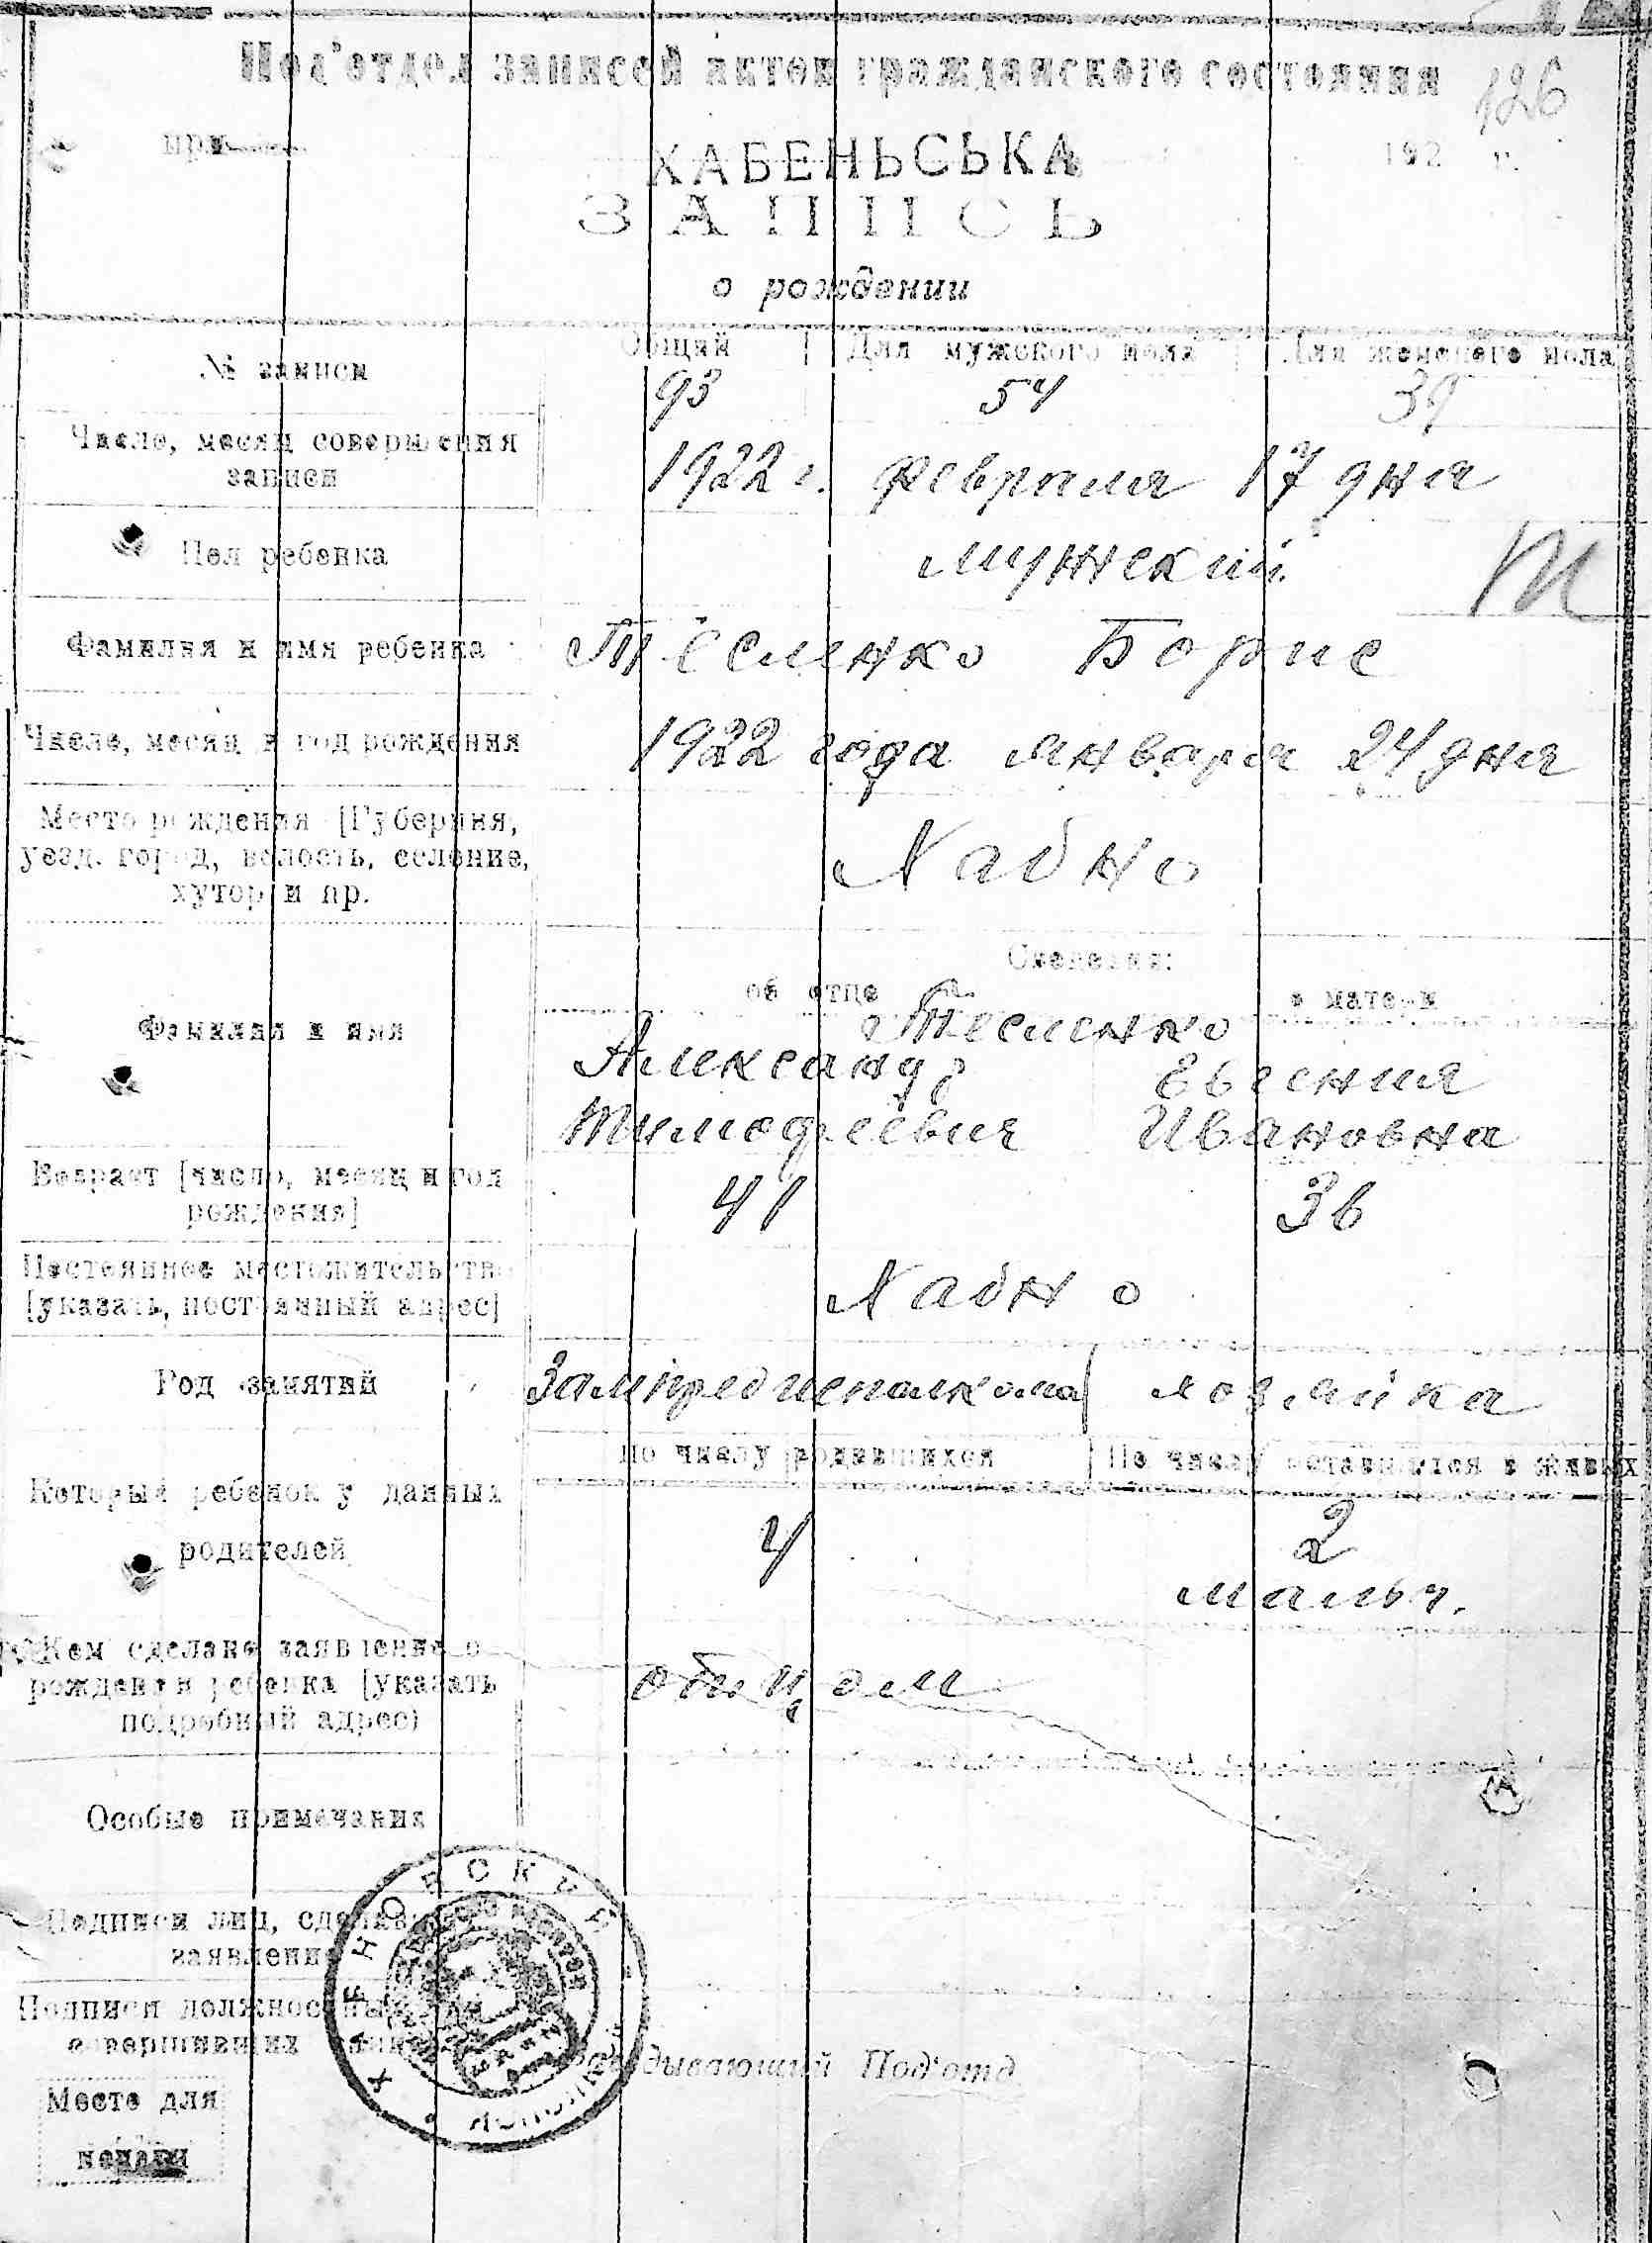 Под'отдел записей актов гражданского состояния
126
при
192 г.
ХАБЕНЬСЬКА
ЗАПИСЬ
о рождении
№ записи
Общий Для мужского пола Для женского пола
93 54 39
Число, месяц совершения
записи
1922 г. февраля 17 дня
Пол ребенка
мужский
М
Фамилия и имя ребенка
Тесленко Борис
Число, месяц и год рождения
1922 года января 24 дня
Место рождения [Губерния,
уезд, город, волость, селение,
хутор и пр.
Хабно
Сведения:
об отце о матери
Фамилия и имя
Тесленко
Александр Евгения
Тимофеевич Ивановна
Возраст [число, месяц и год
рождения]
41 36
Постоянное местожительств
[указать, постоянный адрес]
Хабно
Род занятий
Зампредисполкома хозяйка
По числу родившихся По числу оставшихся в живых
Который ребенок у данных
родителей
4 2
мальч.
Кем сделано заявление о
рождении ребенка [указать
подробный адрес)
отцом
Особые примечания
Подписи лиц, сделавших
заявление
Подписи должностных лиц
совершивших запись
Заведывающий Под'отд.
Место для
печати